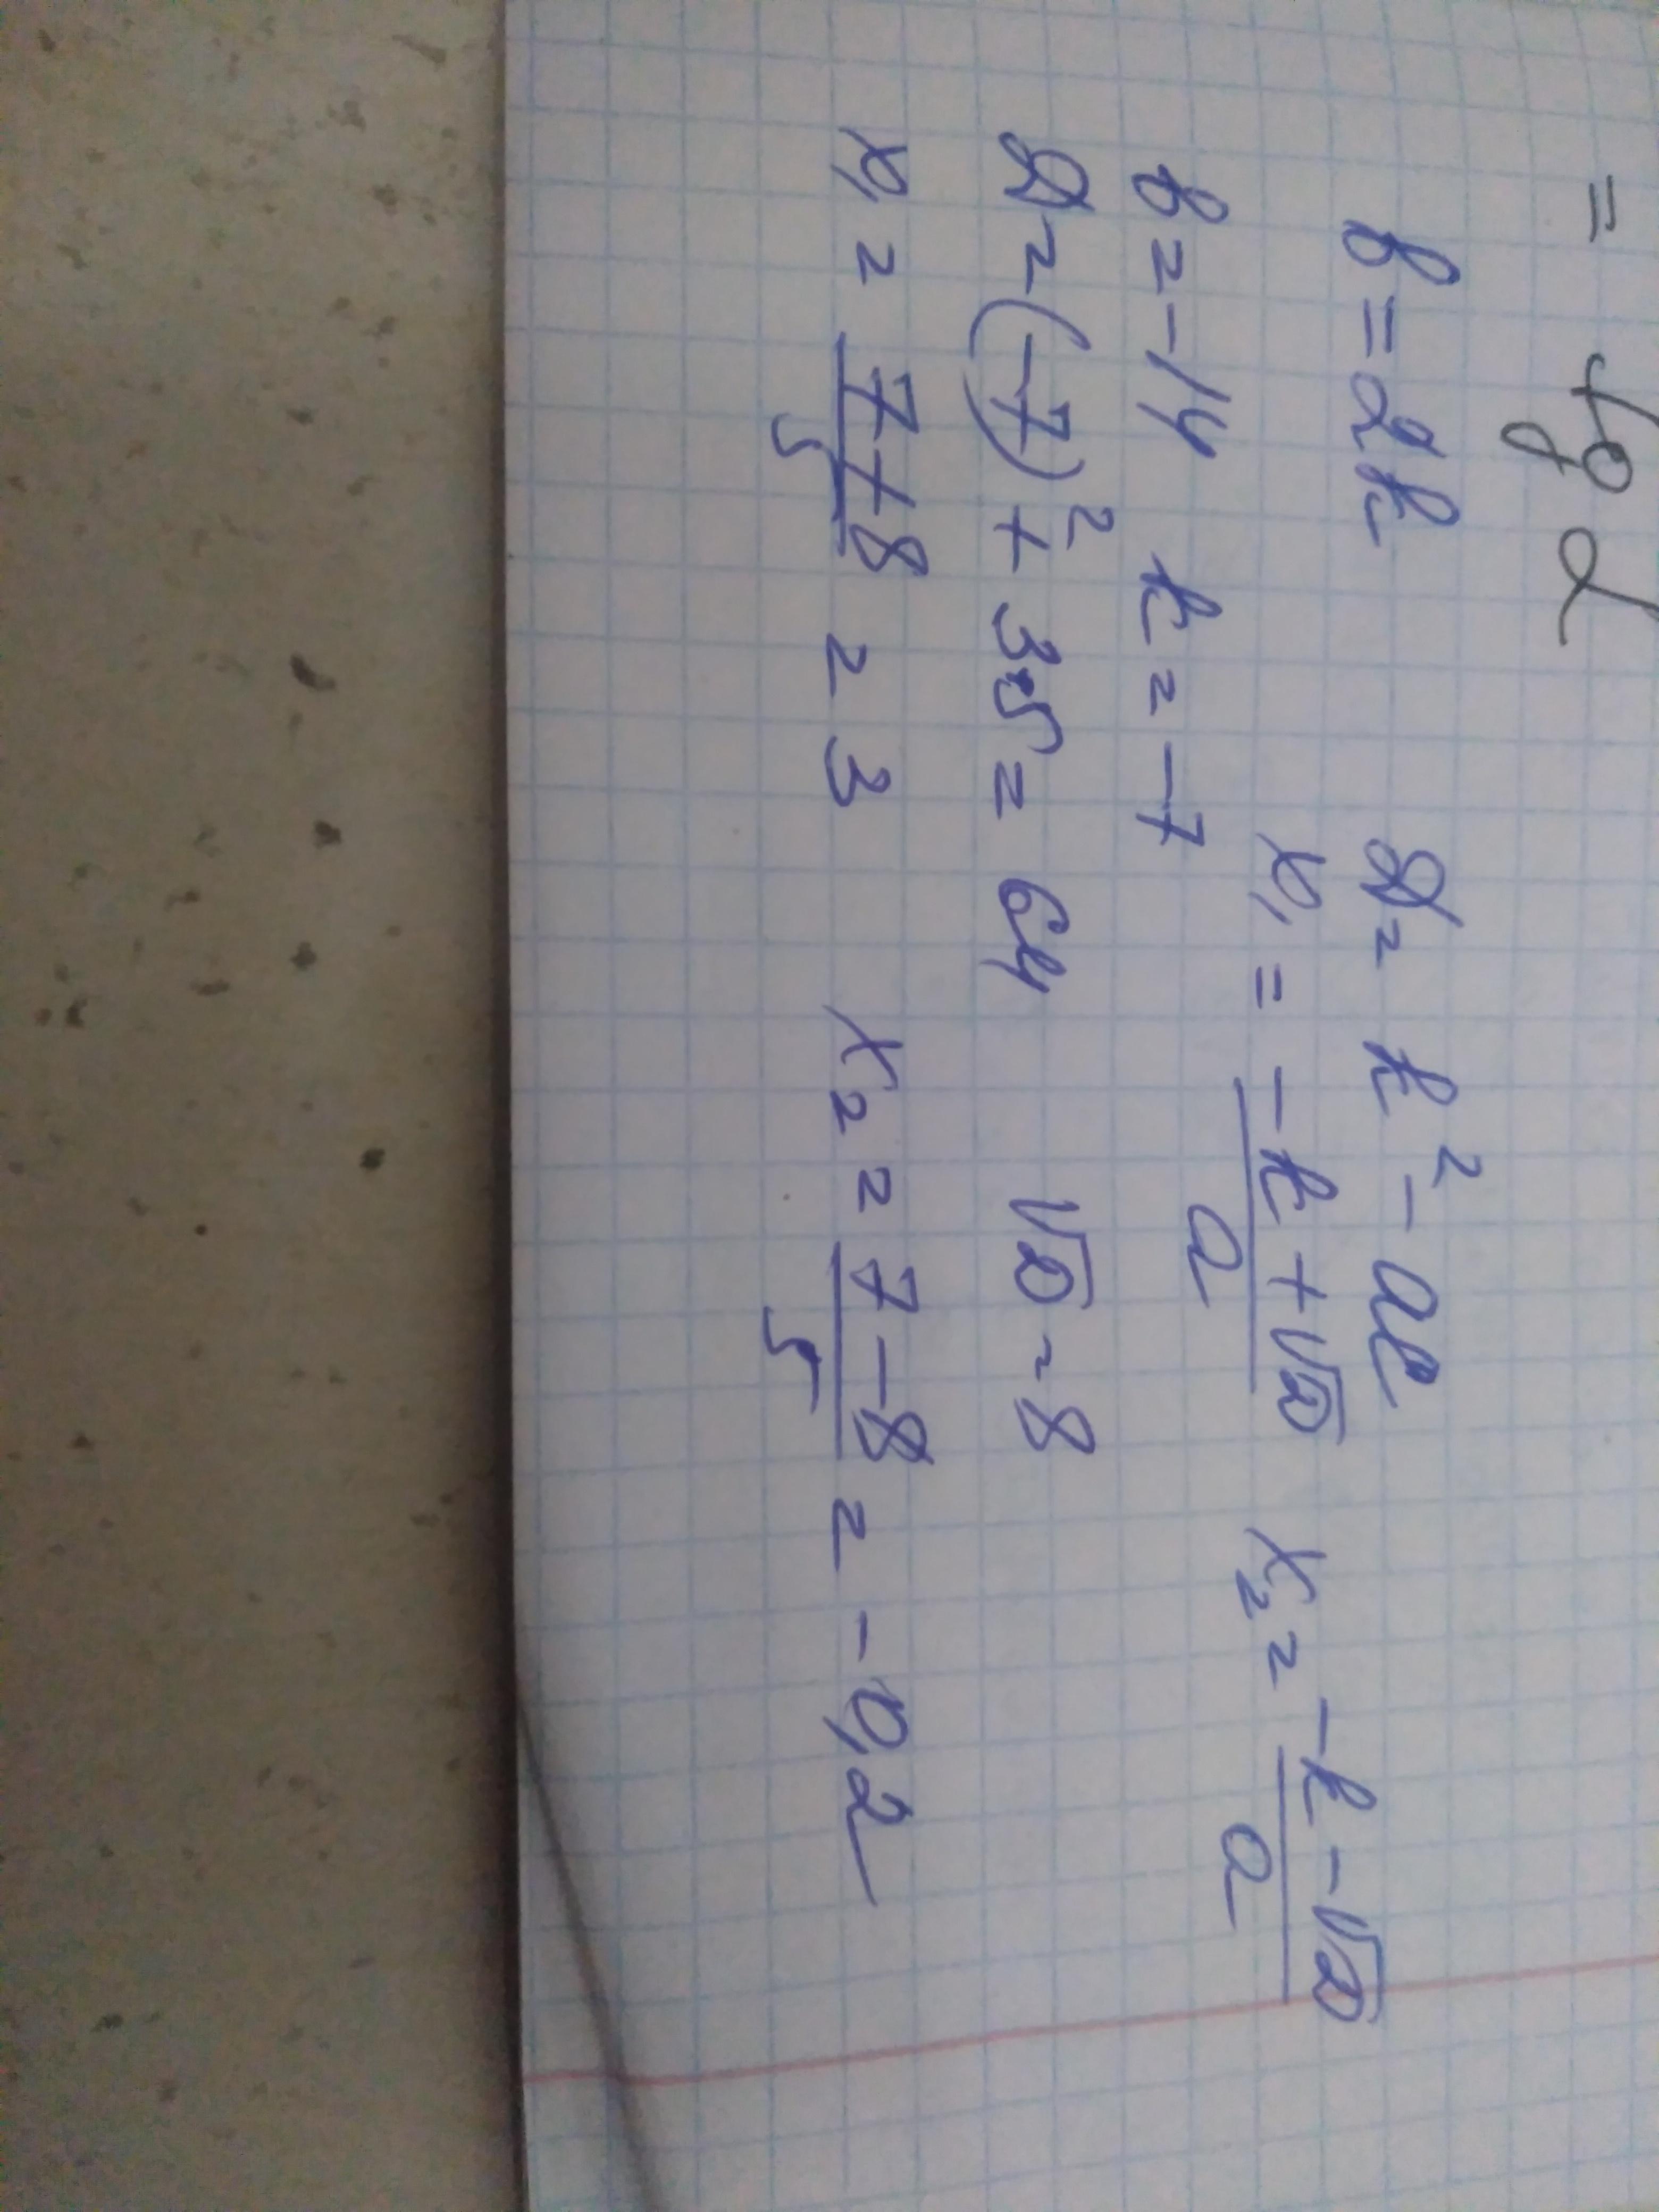 b = 2k D = k² - ac
x₁ = (-k + √D)/a x₂ = (-k - √D)/a
b = -14 k = -7
D = (-7)² + 35 = 64 √D = 8
x₁ = (7 + 8)/5 = 3 x₂ = (7 - 8)/5 = -0,2